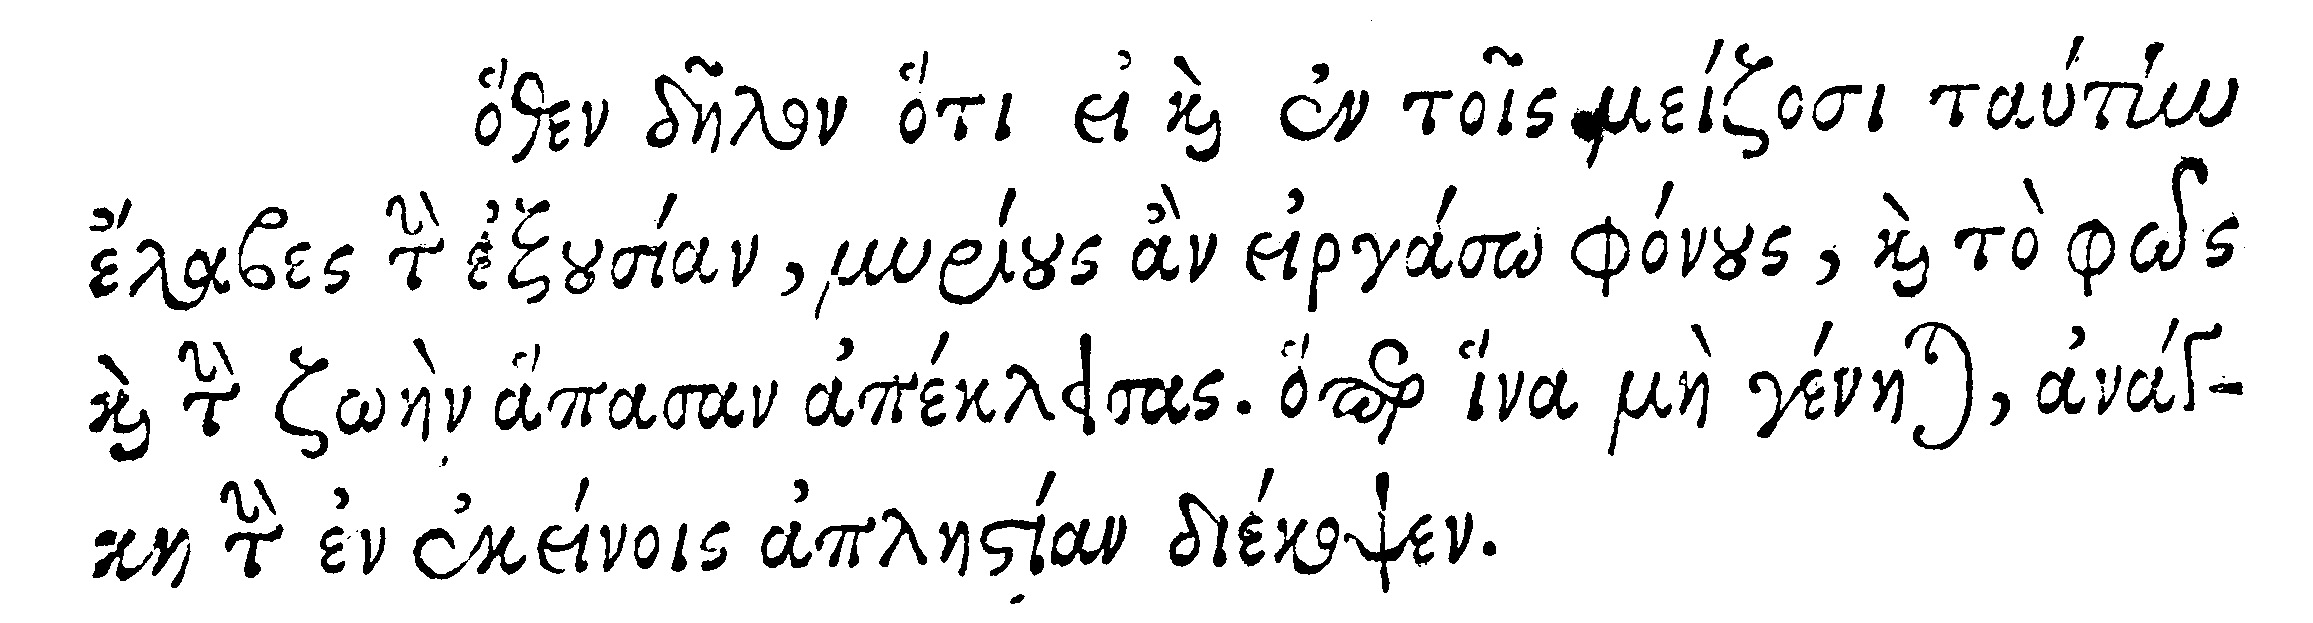 ὅθεν δῆλον ὅτι εἰ καὶ ἐν τοῖς μείζοσι ταύτην
ἔλαβες τὴν ἐξουσίαν, μυρίους ἂν εἰργάσω φόνους, καὶ τὸ φῶς
καὶ τὴν ζωὴν ἅπασαν ἀπέκλεισας. ὅπερ ἵνα μὴ γένηται, ἀνάγ-
κη τὴν ἐν ἐκείνοις ἀπληστίαν διέκοψεν.